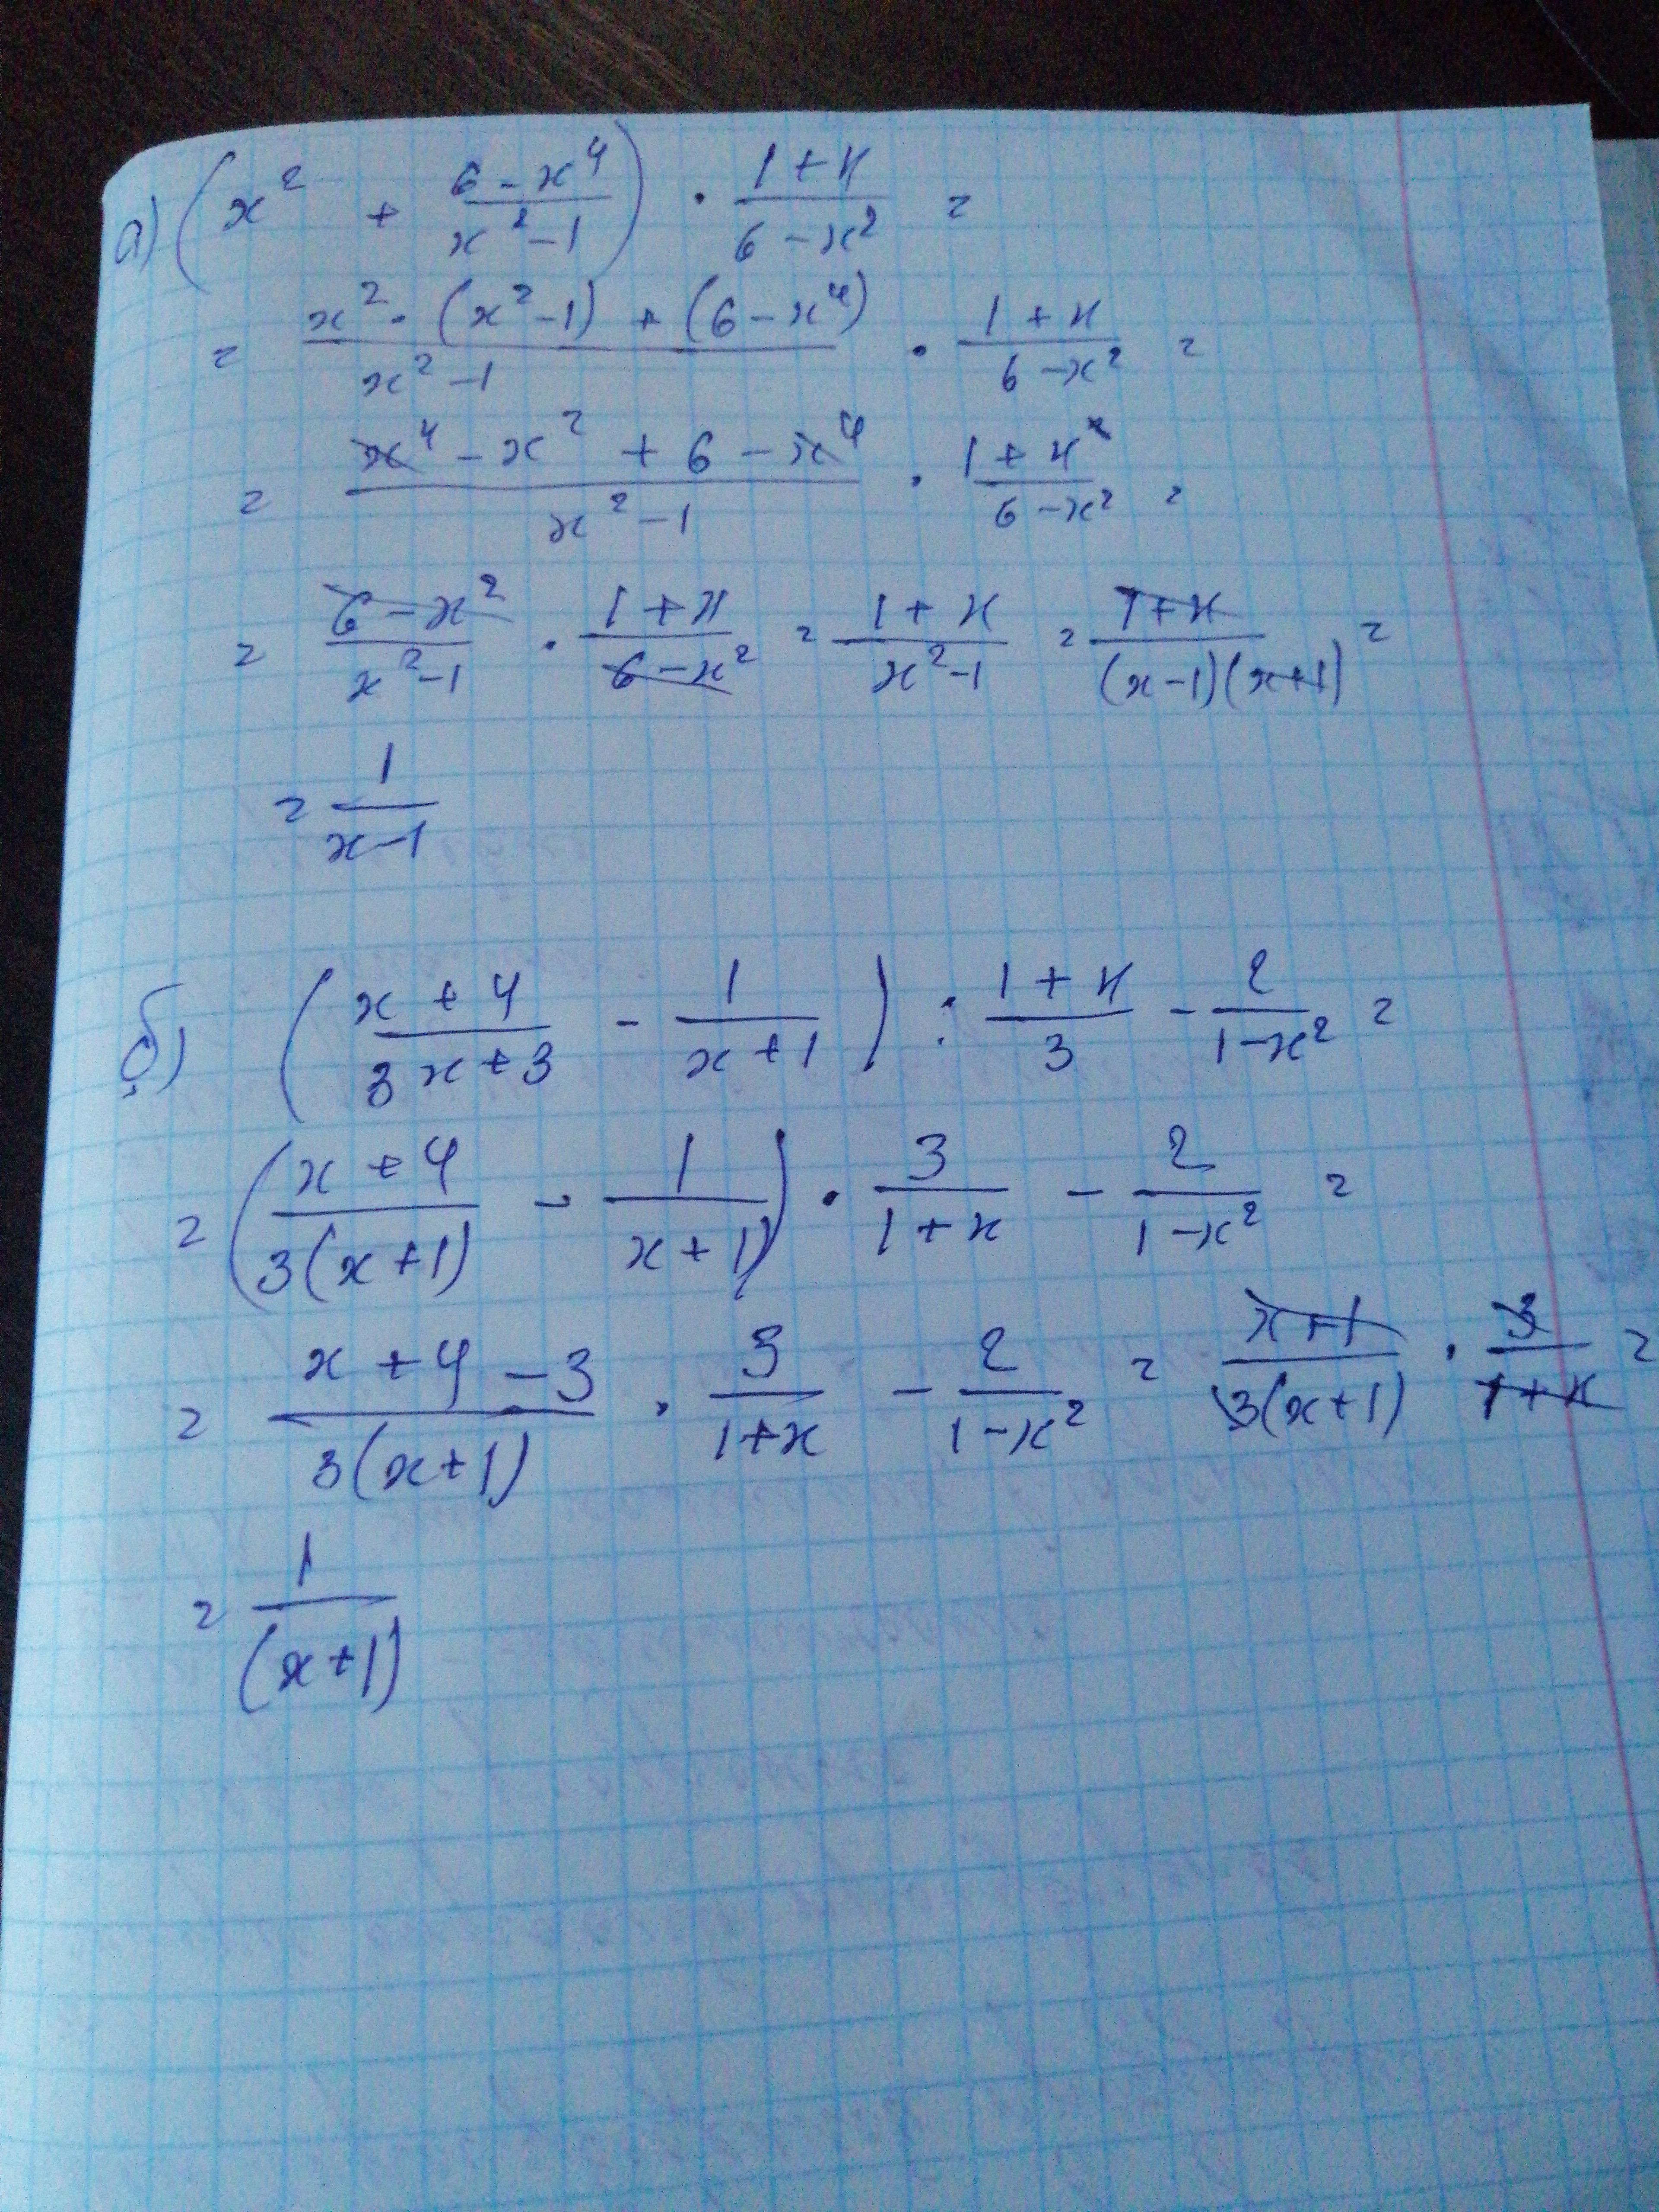 а) (x² + (6-x⁴)/(x²-1)) · (1+x)/(6-x²) =
= (x²·(x²-1) + (6-x⁴))/(x²-1) · (1+x)/(6-x²) =
= (x⁴ - x² + 6 - x⁴)/(x²-1) · (1+x)/(6-x²) =
= (6-x²)/(x²-1) · (1+x)/(6-x²) = (1+x)/(x²-1) = (1+x)/((x-1)(x+1)) =
= 1/(x-1)
б) ((x+4)/(3x+3) - 1/(x+1)) : (1+x)/3 - 2/(1-x²) =
= ((x+4)/(3(x+1)) - 1/(x+1)) · 3/(1+x) - 2/(1-x²) =
= (x+4-3)/(3(x+1)) · 3/(1+x) - 2/(1-x²) = (x+1)/(3(x+1)) · 3/(1+x) =
= 1/(x+1)